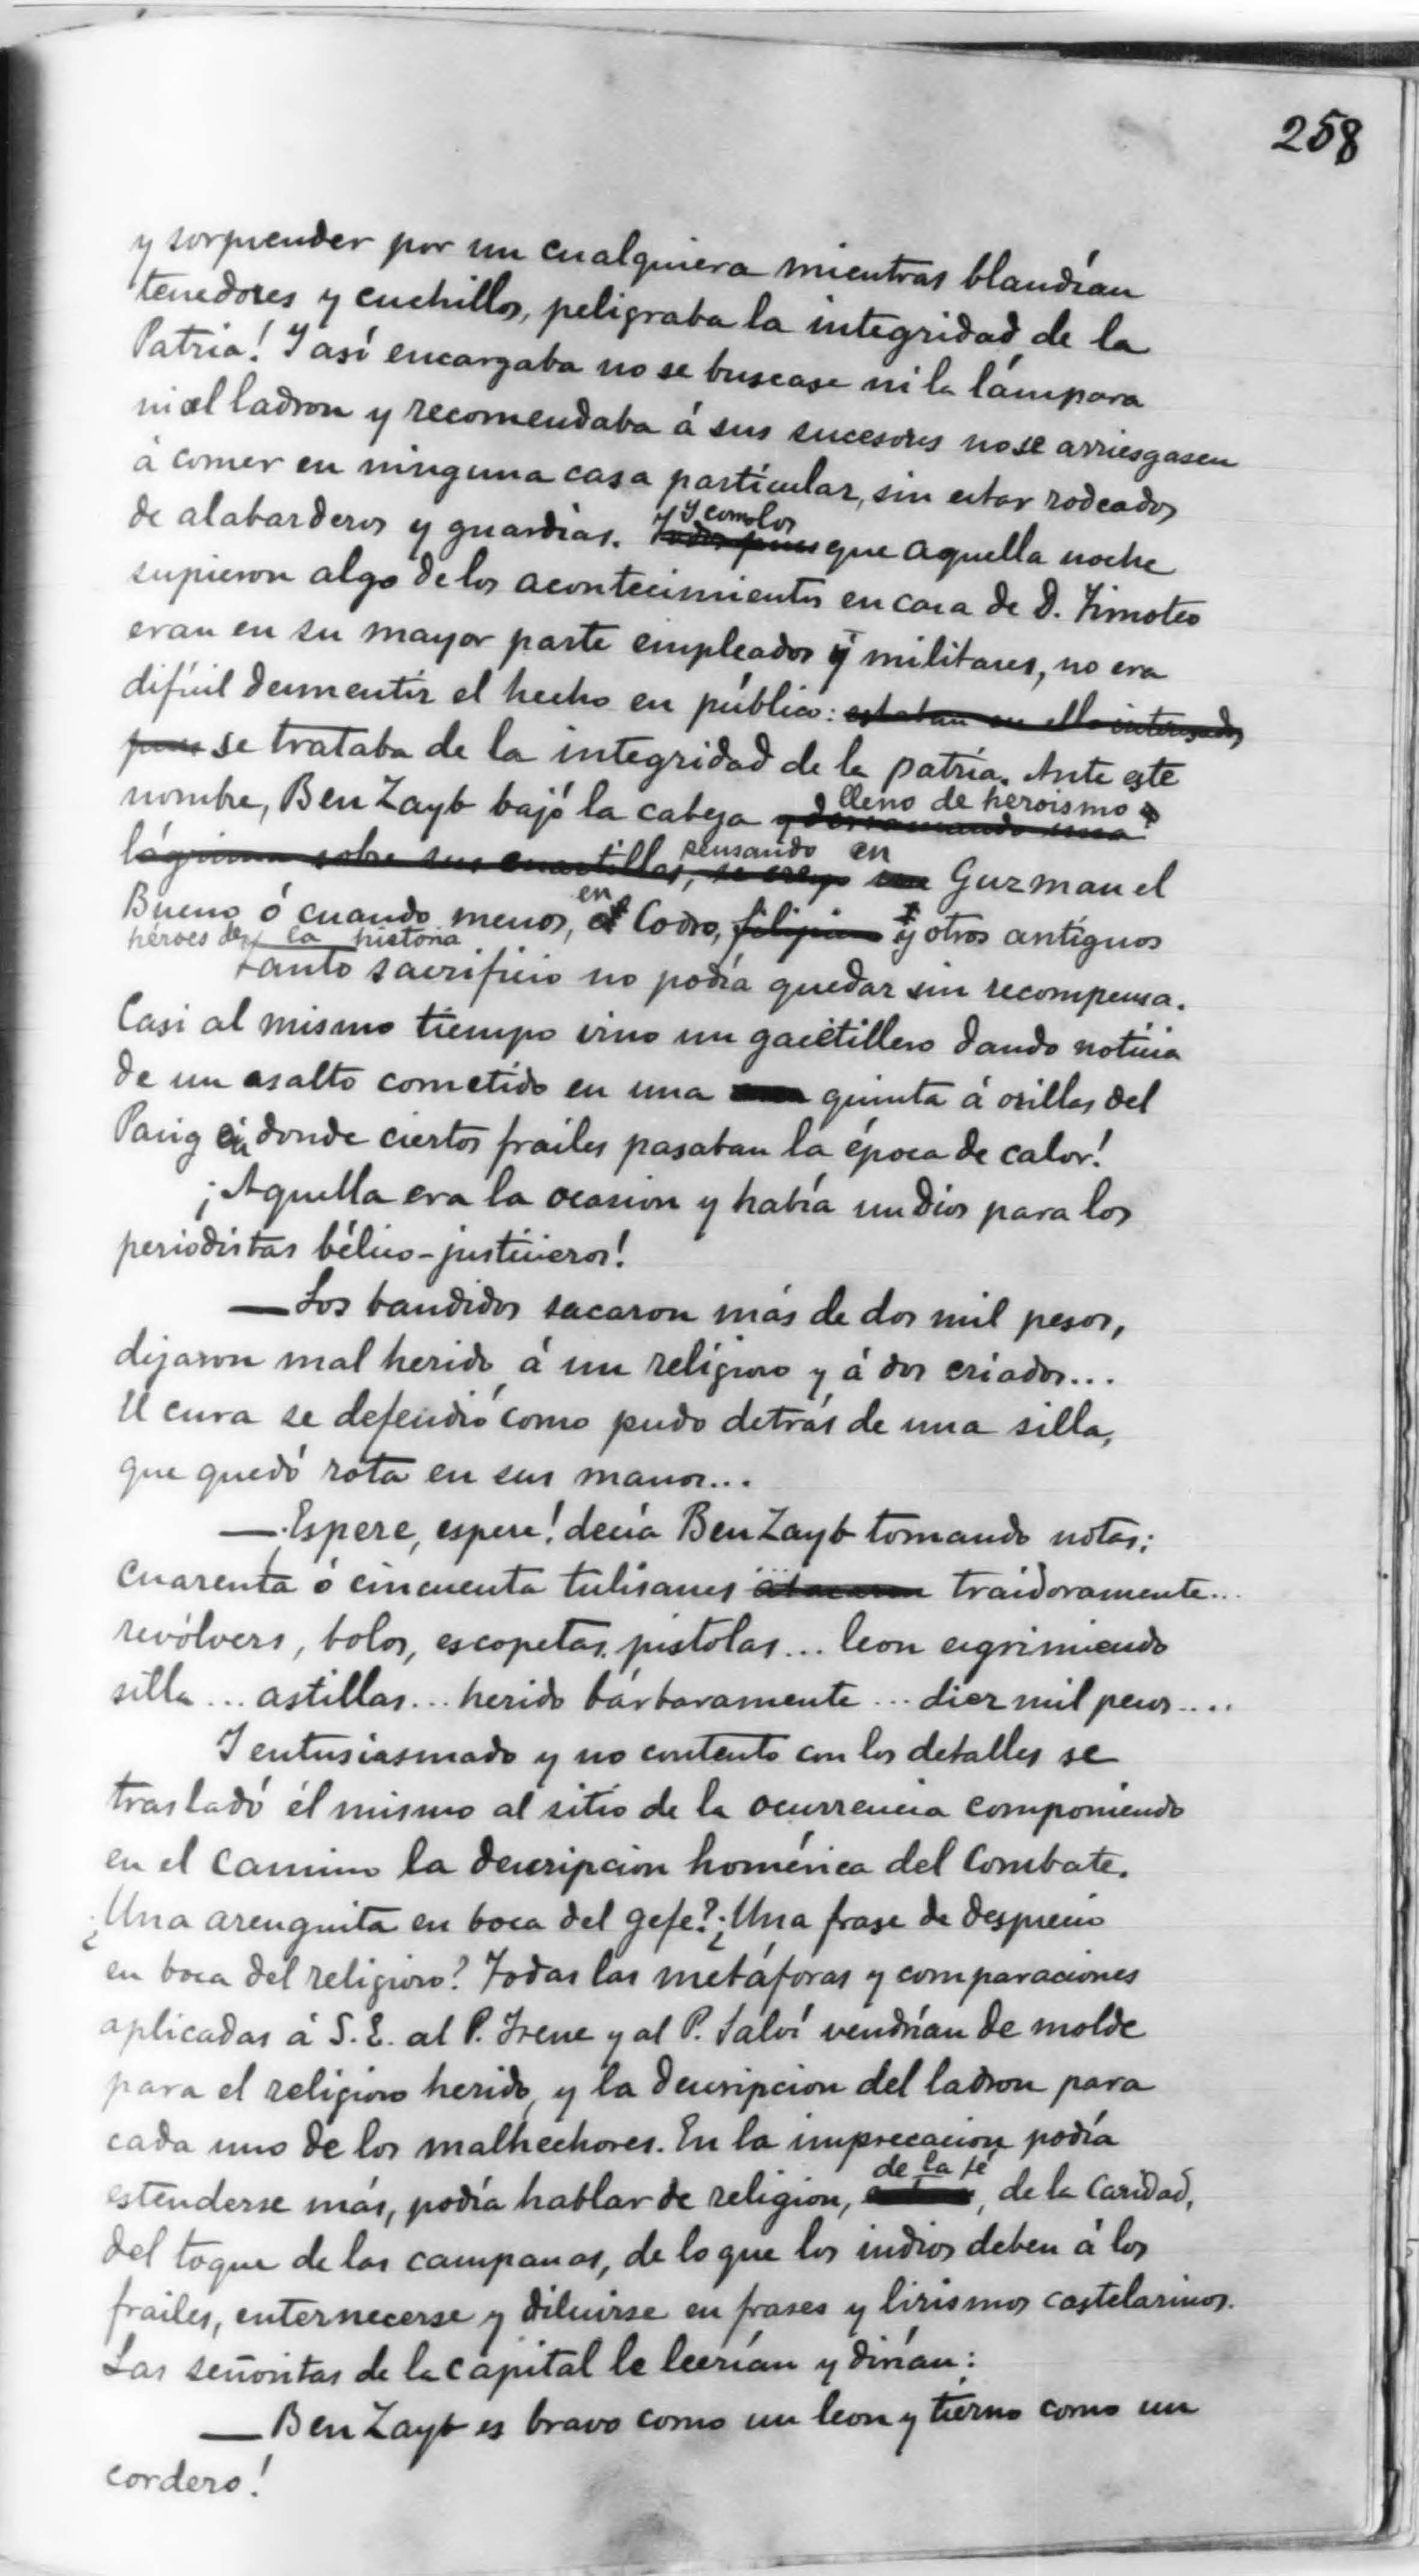 258
y sorprender por un cualquiera mientras blandían
tenedores y cuchillos, peligraba la integridad de la
Patria! Y así encargaba no se buscase ni la lámpara
ni al ladron y recomendaba á sus sucesores no se arriesgasen
á comer en ninguna casa particular, sin estar rodeados
de alabarderos y guardias. Y como los que aquella noche
supieron algo de los acontecimientos en casa de D. Timoteo
eran en su mayor parte empleados y militares, no era
difícil desmentir el hecho en público: estaban en ello interesados
pues se trataba de la integridad de la patria. Ante este
nombre, Ben Zayb bajó la cabeza y derramando una lleno de heroismo
lágrima sobre sus cuartillas, se creyo un pensando en Guzman el
Bueno ó cuando menos, en el Codro, filipino y otros antíguos
héroes de la historia
Tanto sacrificio no podía quedar sin recompensa.
Casi al mismo tiempo vino un gacetillero dando noticia
de un asalto cometido en una quinta á orillas del
Pasig en donde ciertos frailes pasaban la época de calor!
¡Aquella era la ocasion y había un dios para los
periodistas bélico-justicieros!
— Los bandidos sacaron más de dos mil pesos,
dejaron mal herido á un religioso y á dos criados...
El cura se defendió como pudo detrás de una silla,
que quedó rota en sus manos...
— Espere, espere! decía Ben Zayb tomando notas;
cuarenta ó cincuenta tulisanes atacaron traidoramente...
revólvers, bolos, escopetas, pistolas... leon esgrimiendo
silla... astillas... herido bárbaramente... diez mil pesos....
Y entusiasmado y no contento con los detalles se
trasladó él mismo al sitio de la ocurrencia componiendo
en el camino la descripcion homérica del combate.
¿Una arenguita en boca del gefe? ¿Una frase de desprecio
en boca del religioso? Todas las metáforas y comparaciones
aplicadas á S. E. al P. Irene y al P. Salví vendrían de molde
para el religioso herido, y la descripcion del ladron para
cada uno de los malhechores. En la imprecacion podía
estenderse más, podía hablar de religion, de la fé, de la caridad,
del toque de las campanas, de lo que los indios deben á los
frailes, enternecerse y diluirse en frases y lirismos castelarinos.
Las señoritas de la capital le leerían y dirían:
— Ben Zayb es bravo como un leon y tierno como un
cordero!